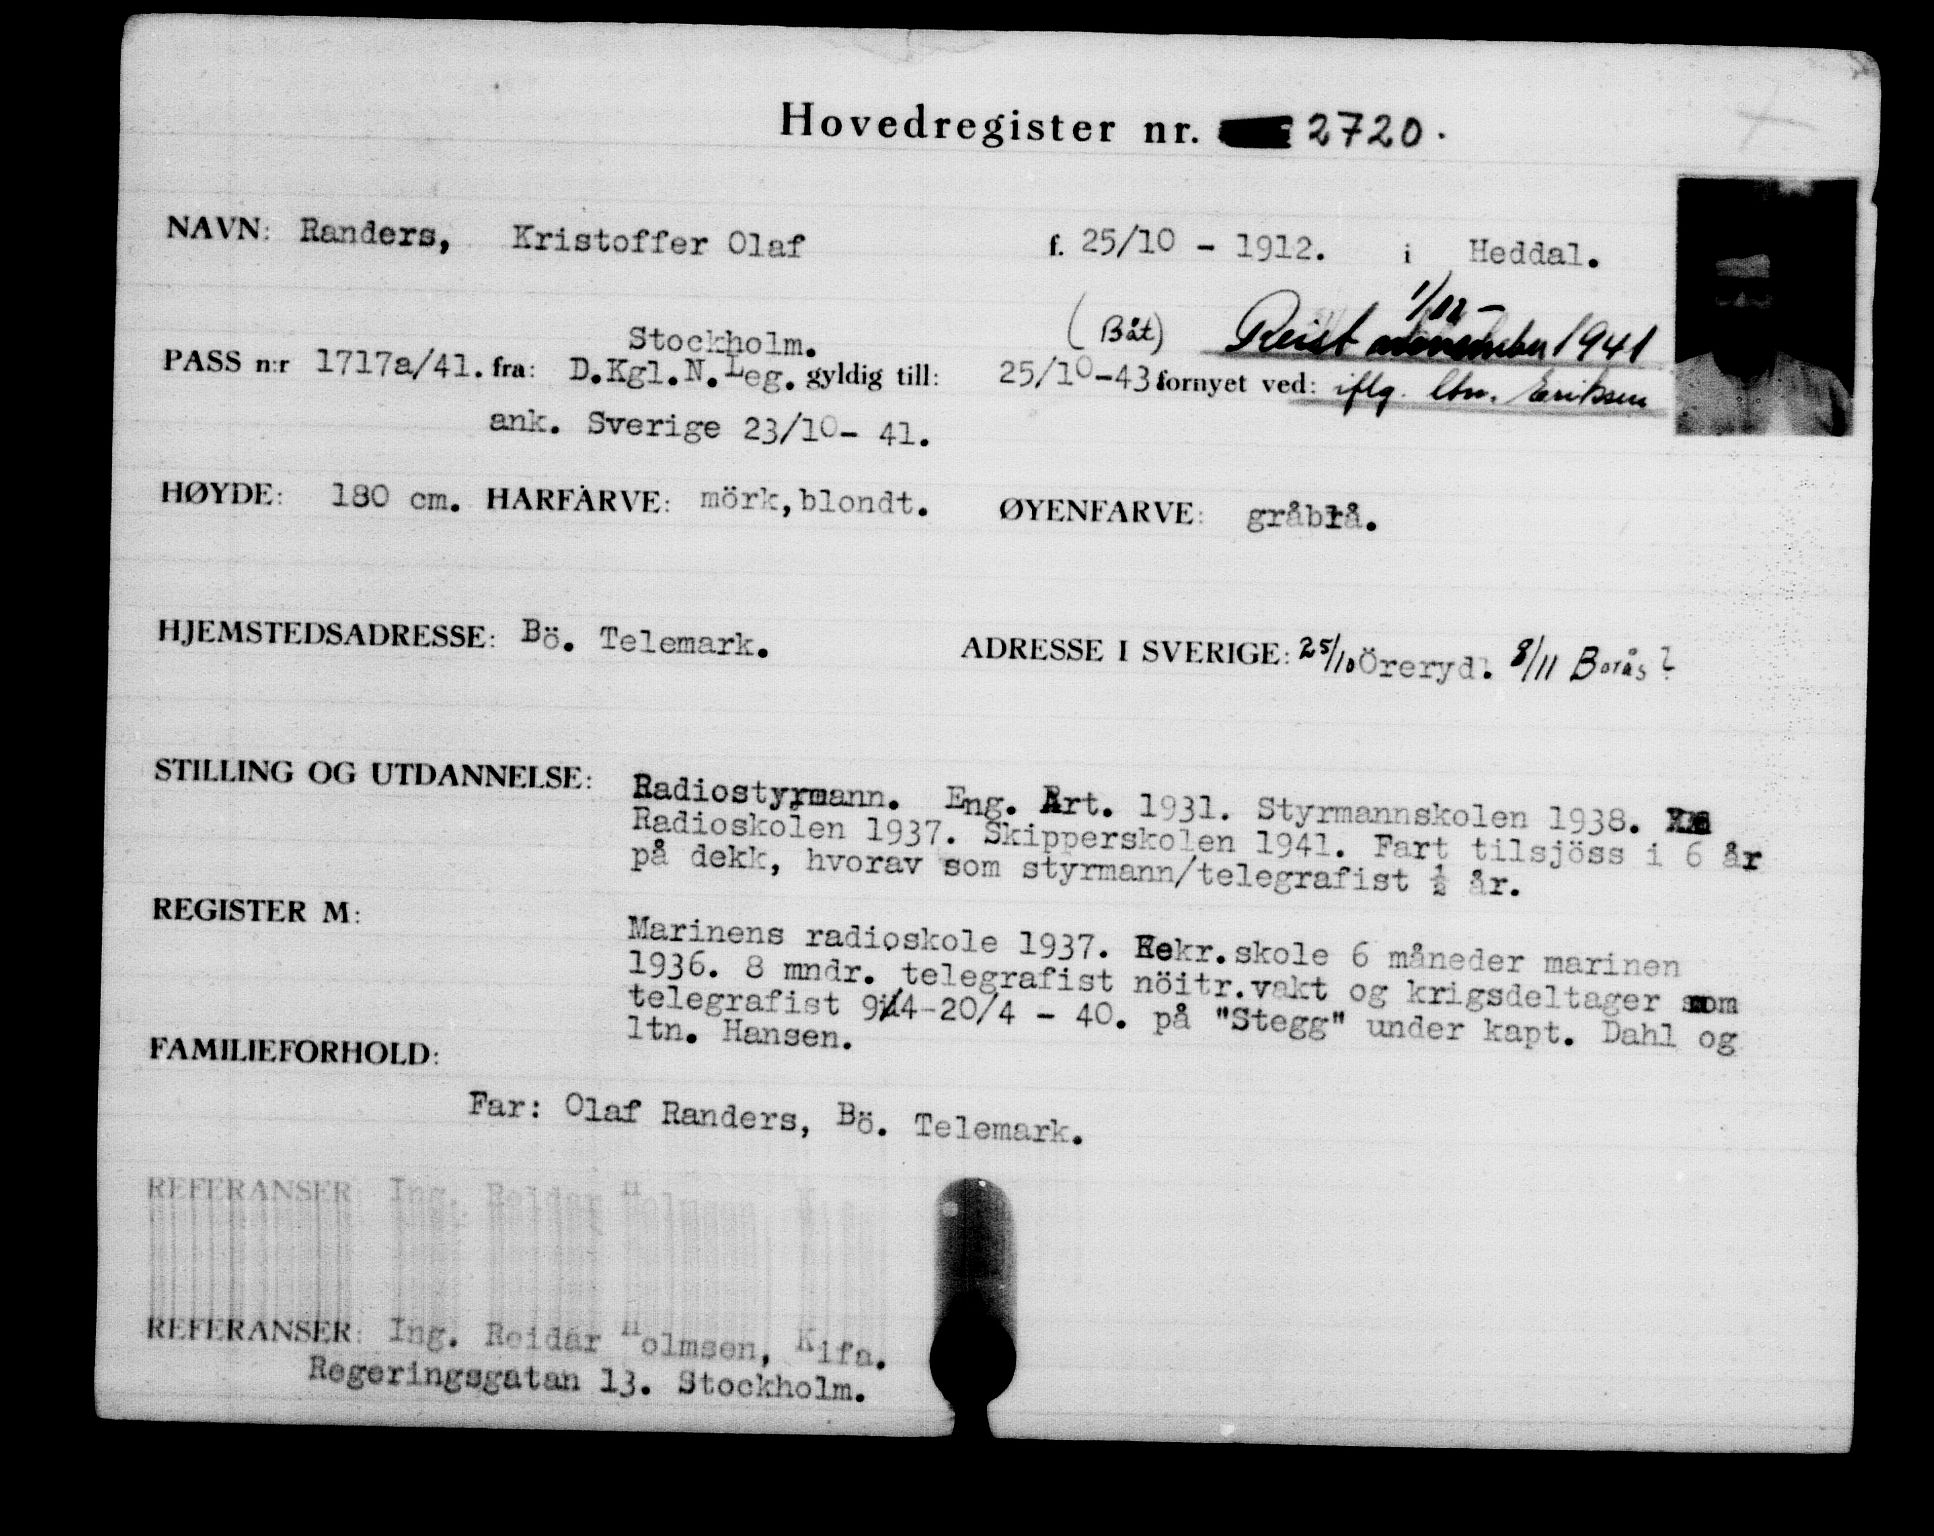 Hovedregister nr. 2720.
NAVN: Randers, Kristoffer Olaf f. 25/10 - 1912. i Heddal.
1/12 -
Stockholm. (Båt) Reist 1941
PASS n:r 1717a/41. fra: D.Kgl.N.Leg. gyldig till: 25/10-43 fornyet ved: iflg. ltn. Eriksen
ank. Sverige 23/10- 41.
HØYDE: 180 cm. HÅRFARVE: mörk,blondt. ØYENFARVE: gråblå.
HJEMSTEDSADRESSE: Bö. Telemark. ADRESSE I SVERIGE: 25/10 Öreryd. 8/11 Borås ?
STILLING OG UTDANNELSE: Radiostyrmann. Eng. Art. 1931. Styrmannskolen 1938.
Radioskolen 1937. Skipperskolen 1941. Fart tilsjöss i 6 år
på dekk, hvorav som styrmann/telegrafist ½ år.
REGISTER M:
Marinens radioskole 1937. Rekr.skole 6 måneder marinen
1936. 8 mndr. telegrafist nöitr.vakt og krigsdeltager som
telegrafist 9/4-20/4 - 40. på "Stegg" under kapt. Dahl og
ltn. Hansen.
FAMILIEFORHOLD:
Far: Olaf Randers, Bö. Telemark.
REFERANSER: Ing. Reidar Holmsen, Kifa.
Regeringsgatan 13. Stockholm.